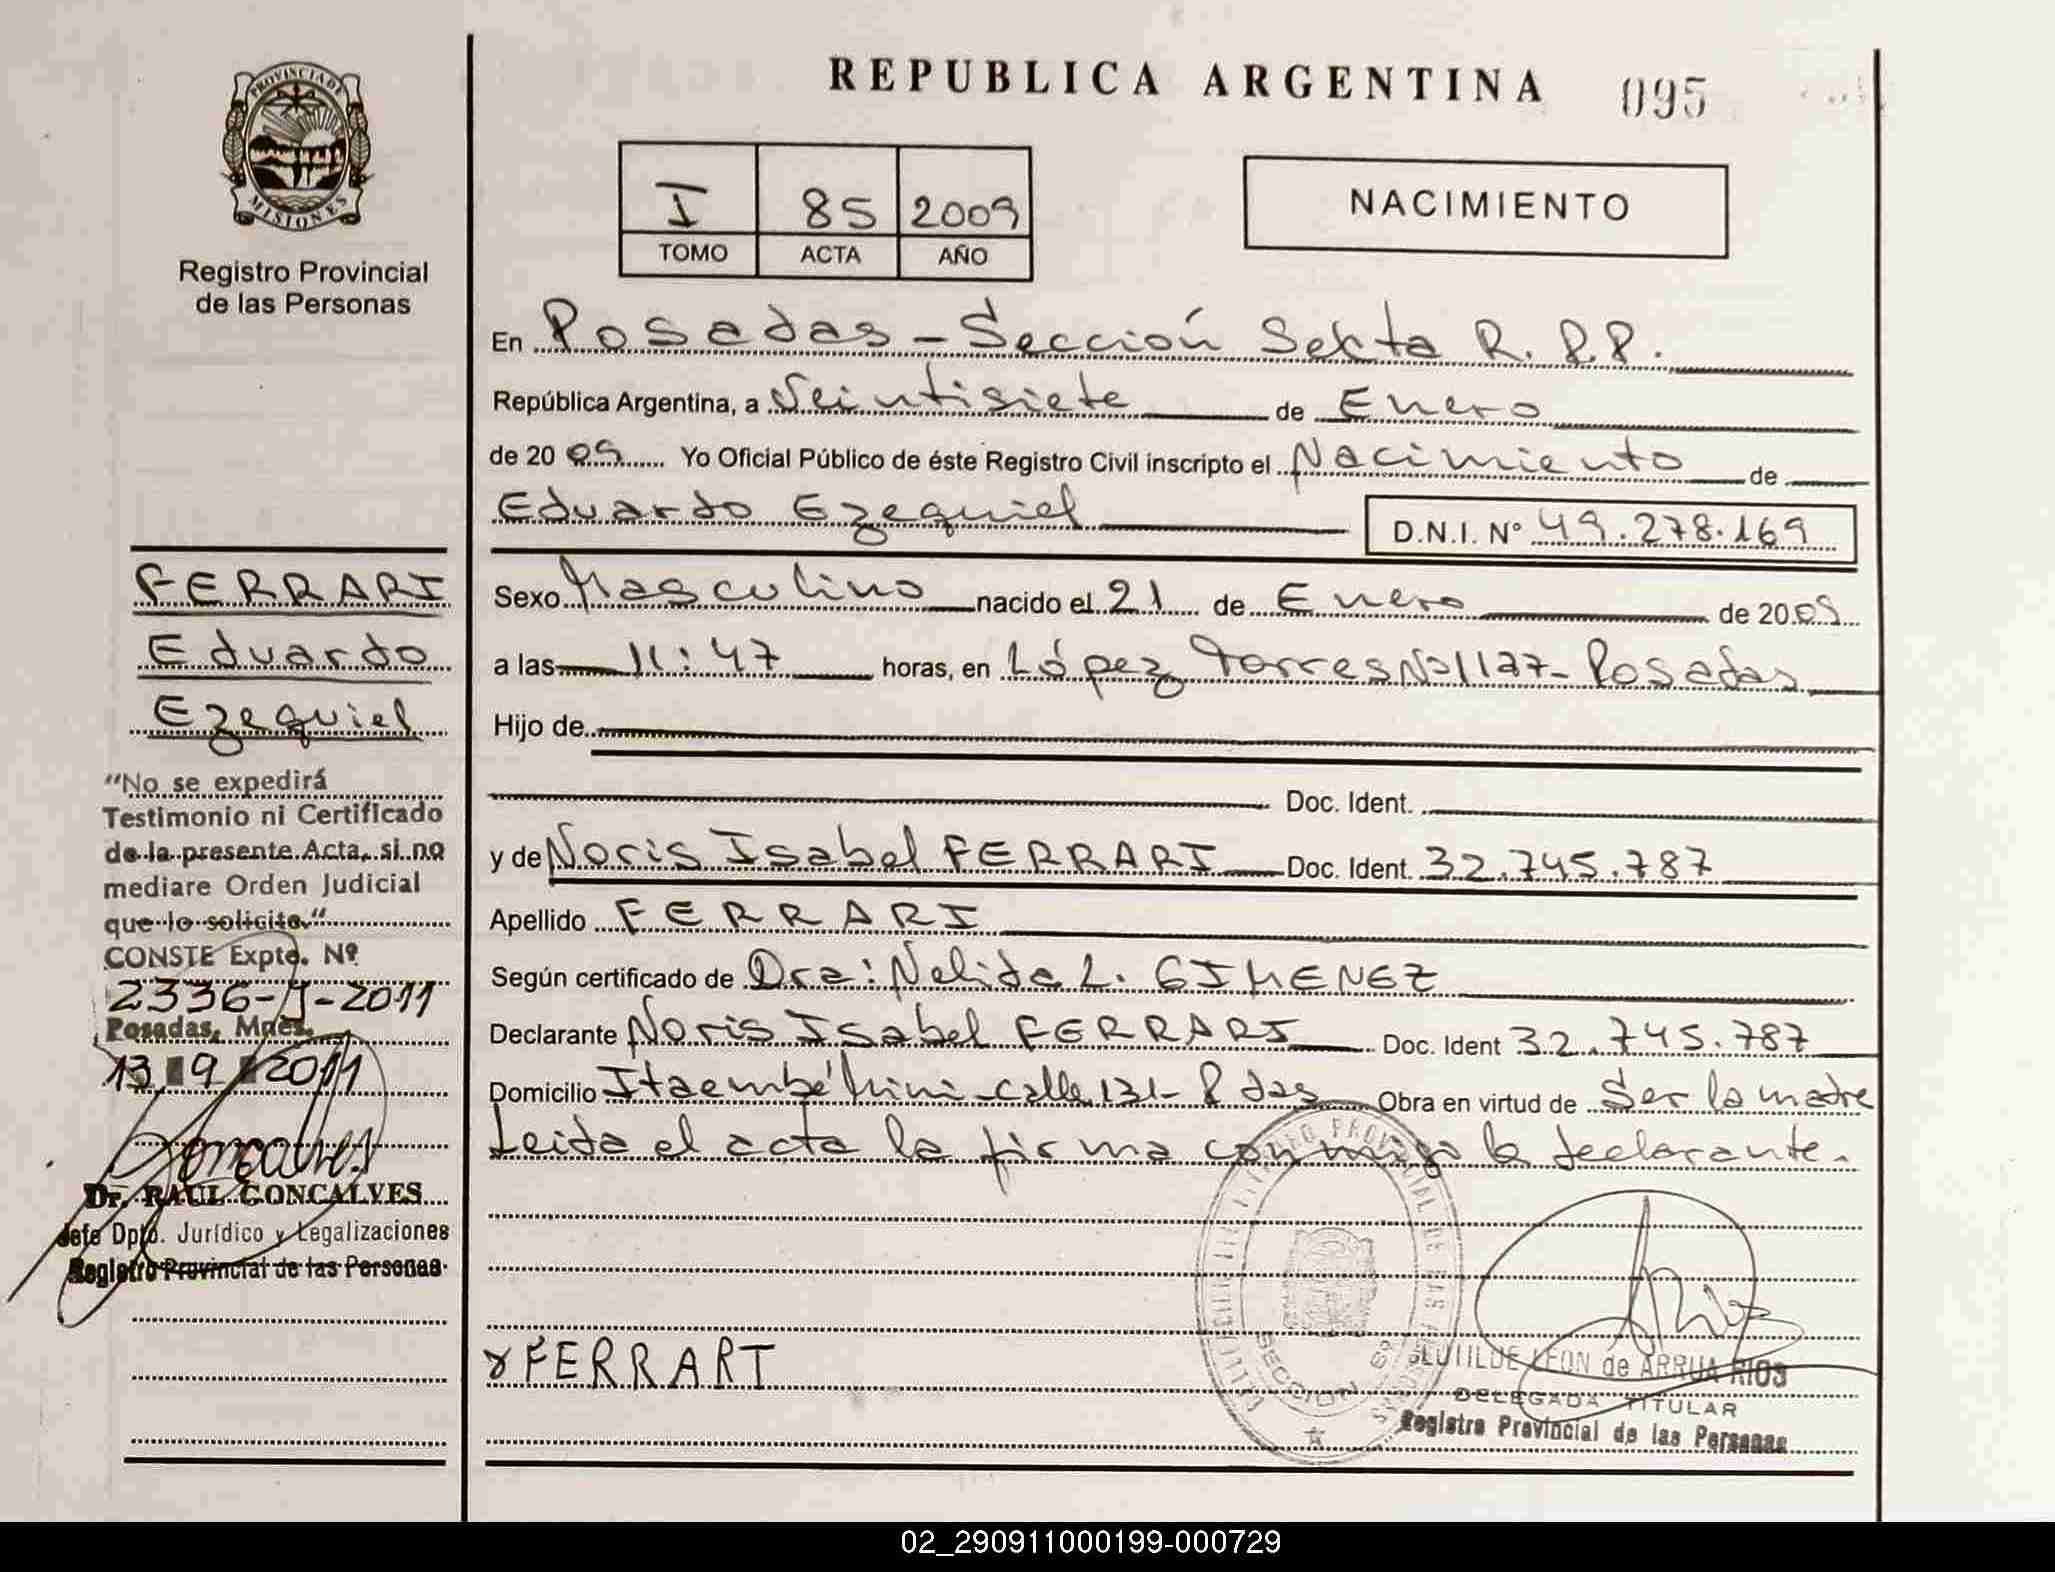 PROVINCIA DE
MISIONES
Registro Provincial
de las Personas
REPUBLICA ARGENTINA 095
I 85 2009
TOMO ACTA AÑO
NACIMIENTO
En Posadas - Sección Sexta R.P.P.
República Argentina, a Veintisiete de Enero
de 20 09 Yo Oficial Público de éste Registro Civil inscripto el Nacimiento de
Eduardo Ezequiel D.N.I. Nº 49.278.169
Sexo Masculino nacido el 21 de Enero de 20 09
a las 11:47 horas, en López Torres Nº 1177 - Posadas
Hijo de
Doc. Ident.
y de Noris Isabel FERRARI Doc. Ident. 32.745.787
Apellido FERRARI
Según certificado de Dra: Nelida L. GIMENEZ
Declarante Noris Isabel FERRARI Doc. Ident 32.745.787
Domicilio Itaembé Mini - calle 131 - Pdas Obra en virtud de Ser la madre
Leida el acta la firma conmigo la declarante.
FERRARI
CLOTILDE LEON de ARRUA RIOS
DELEGADA TITULAR
Registro Provincial de las Personas
FERRARI
Eduardo
Ezequiel
"No se expedirá
Testimonio ni Certificado
de la presente Acta, si no
mediare Orden Judicial
que lo solicite."
CONSTE Expte. Nº
2336- -2011
Posadas, Mnes.
13 9 2011
Goncalves
Dr. RAUL GONCALVES
Jefe Dpto. Jurídico y Legalizaciones
Registro Provincial de las Personas
02_290911000199-000729